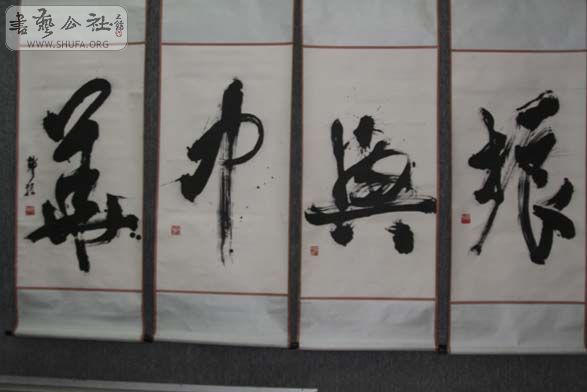 書藝公社
WWW.SHUFA.ORG
振
興
中
華